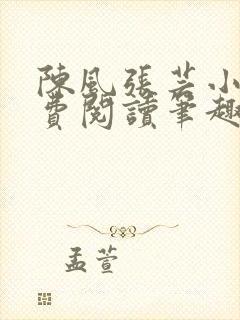 陳風張若小
費閱讀筆趣
孟萱